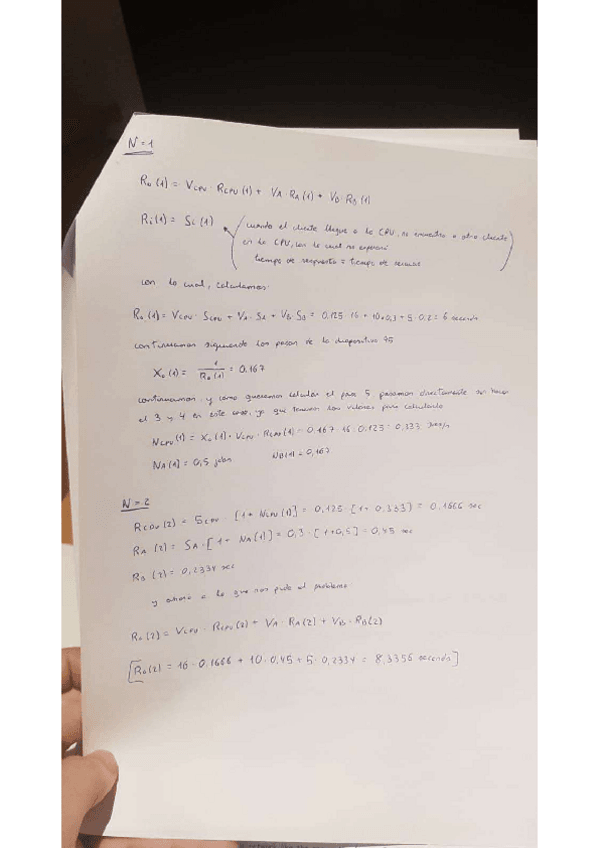 N=1
R₀(1) = V_CPU · R_CPU(1) + V_A · R_A(1) + V_B · R_B(1)
Rᵢ(1) = Sᵢ(1)
cuando el cliente llegue a la CPU, no encuentra a otro cliente
en la CPU, con lo cual no esperará
tiempo de respuesta = tiempo de servicio
con lo cual, calculamos
R₀(1) = V_CPU · S_CPU + V_A · S_A + V_B · S_B = 0.125 · 16 + 10 · 0,3 + 5 · 0.2 = 6 segundos
continuamos siguiendo los pasos de la diapositiva 75
X₀(1) = 1 / R₀(1) = 0.167
continuamos, y como queremos calcular el paso 5, pasamos directamente sin hacer
el 3 y 4 en este caso, ya que tenemos los valores para calcularlo
N_CPU(1) = X₀(1) · V_CPU · R_CPU(1) = 0.167 · 16 · 0.125 = 0.333
N_A(1) = 0,5 jobs N_B(1) = 0,167
N=2
R_CPU(2) = S_CPU [1 + N_CPU(1)] = 0.125 · [1 + 0.333] = 0.1666 sec
R_A(2) = S_A · [1 + N_A(1)] = 0,3 · [1+0,5] = 0,45 sec
R_B(2) = 0,2334 sec
y ahora a lo que nos pide el problema
R₀(2) = V_CPU · R_CPU(2) + V_A · R_A(2) + V_B · R_B(2)
[R₀(2) = 16 · 0.1666 + 10 · 0.45 + 5 · 0,2334 = 8,3356 segundos]